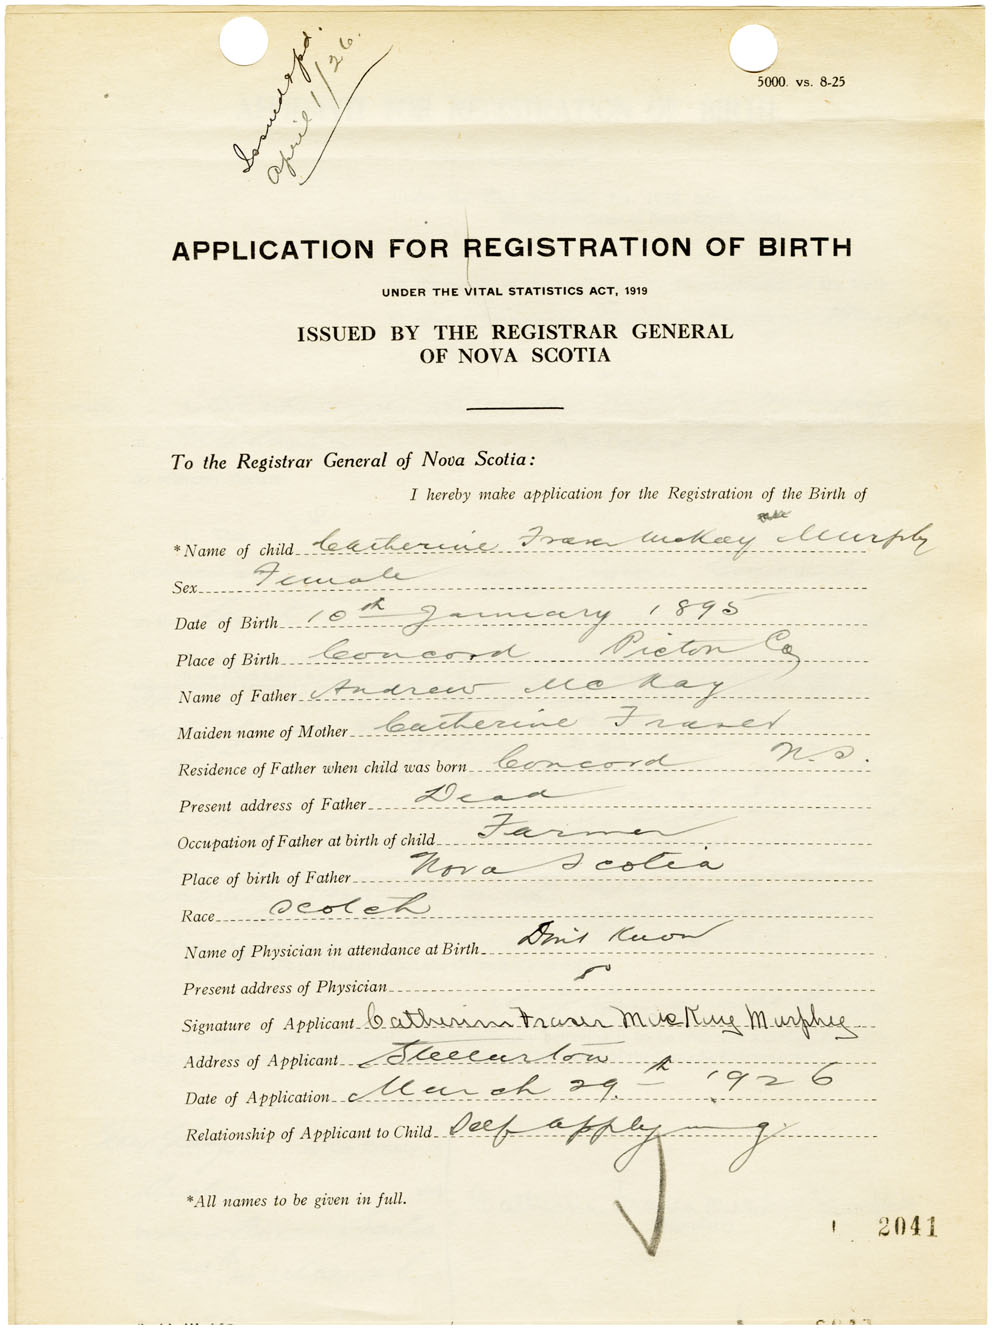 Issued & pd.
April 1/26.
5000. vs. 8-25
APPLICATION FOR REGISTRATION OF BIRTH
UNDER THE VITAL STATISTICS ACT, 1919
ISSUED BY THE REGISTRAR GENERAL
OF NOVA SCOTIA
To the Registrar General of Nova Scotia:
I hereby make application for the Registration of the Birth of
*Name of child Catherine Fraser McKay Murphy
Sex Female
Date of Birth 10th January 1895
Place of Birth Concord Pictou Co
Name of Father Andrew McKay
Maiden name of Mother Catherine Fraser
Residence of Father when child was born Concord N.S.
Present address of Father Dead
Occupation of Father at birth of child Farmer
Place of birth of Father Nova Scotia
Race Scotch
Name of Physician in attendance at Birth Don't Know
Present address of Physician
Signature of Applicant Catherine Fraser MacKay Murphy
Address of Applicant Stellarton
Date of Application March 29th 1926
Relationship of Applicant to Child Self applying
*All names to be given in full.
2041